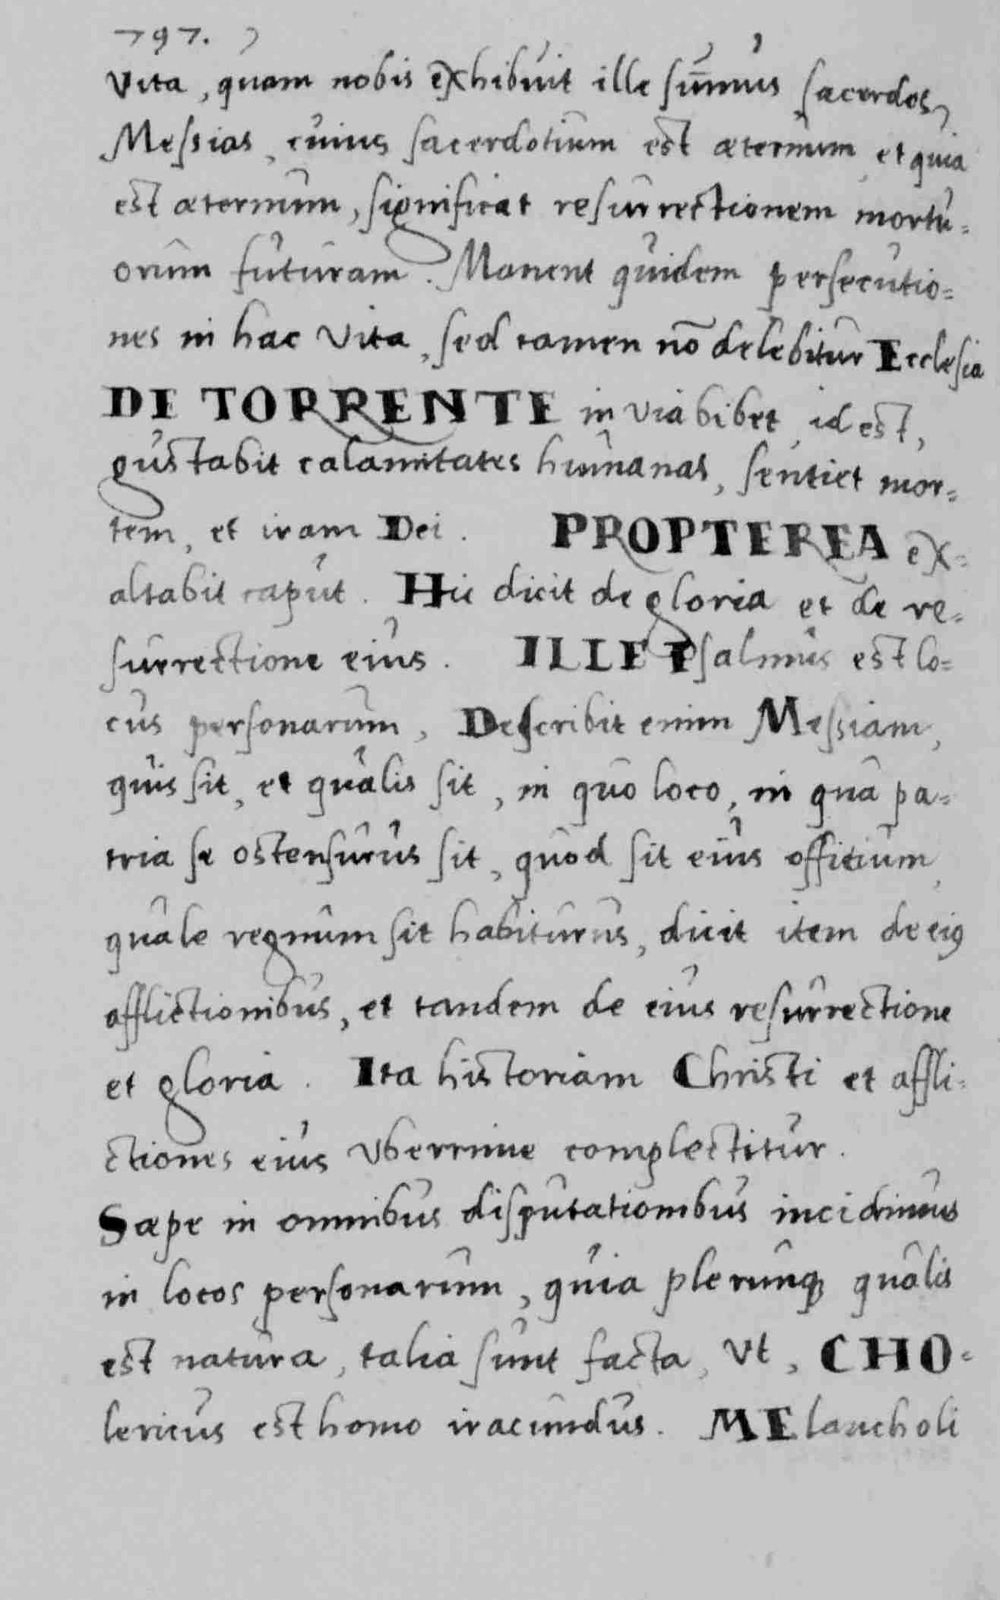 797.
Vita, quam nobis exhibuit ille sum̄us sacerdos
Messias, cuius sacerdotium est æternum et quia
est æternum, significat resurrectionem mortu=
orum futuram. Manent quidem persecutio=
nes in hac Vita, sed tamen nō delebitur Ecclesia
DE TORRENTE in via bibet, id est,
gustabit calamitates humanas, sentiet mor=
tem, et iram Dei. PROPTEREA ex=
altabit caput. Hic dicit de gloria et de re=
surrectione eius. ILLE Psalmus est lo=
cus personarum, Describit enim Messiam,
quis sit, et qualis sit, in quo loco, in qua pa=
tria se ostensurus sit, quod sit eius offitium,
quale regnum sit habiturus, dicit item de eiꝰ
afflictionibus, et tandem de eius resurrectione
et gloria. Ita historiam Christi et affli=
ctiones eius Vberrime complectitur.
Sæpe in omnibus disputationibus incidimus
in locos personarum, quia plerunqꝫ qualis
est natura, talia sunt facta, Vt, CHO=
lericus est homo iracundus. MElancholi